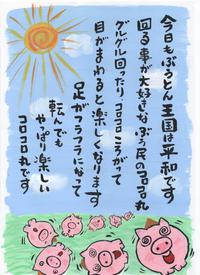 今日もぶうとん王国は平和です
回る事が大好きなぶぅ民のコロコロ丸
グルグル回ったりコロコロころがって
目がまわると楽しくなります
足がフラフラになって
転んでも
やっぱり楽しい
コロコロ丸です